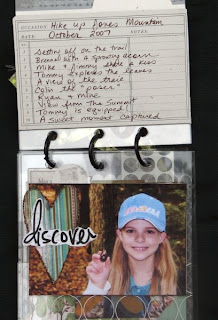 OCCASION Hike Up Jones Mountain
DATE October 2007
Setting off on the trail
Brennal with a sprouting acorn
Mike & Jimmy share a kiss
Tommy explores the leaves
A view of the trail
Colin the "poser"
Ryan & Mike
View from the Summit
Tommy is equipped!
A sweet moment captured
discover